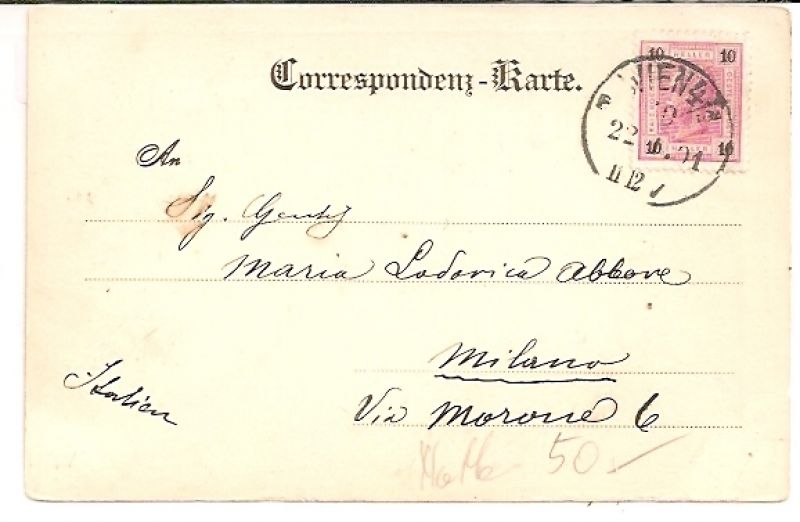 Correspondenz-Karte.
10 HELLER 10
WIEN 4
22
01
11 12
10 HELLER 10
An
Sig. Gent
Maria Lodovica Abbove
Milano
Italien
Via Morone 6
50.-